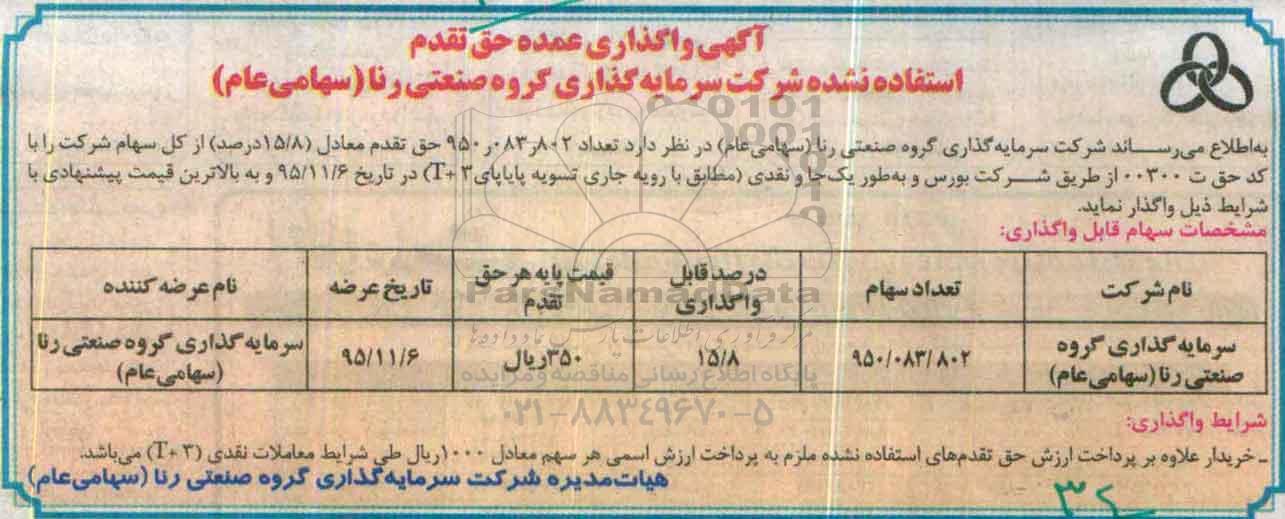 آگهی واگذاری عمده حق تقدم
استفاده نشده شرکت سرمایه گذاری گروه صنعتی رنا (سهامی عام)
به‌اطلاع می‌رساند شرکت سرمایه‌گذاری گروه صنعتی رنا (سهامی‌عام) در نظر دارد تعداد ۹۵۰ر۰۸۳ر۸۰۲ حق تقدم معادل (۱۵/۸درصد) از کل سهام شرکت را با
کد حق ت ۰۰۳۰۰ از طریق شرکت بورس و به‌طور یک‌جا و نقدی (مطابق با رویه جاری تسویه پایاپای T+۳) در تاریخ ۹۵/۱۱/۶ و به بالاترین قیمت پیشنهادی با
شرایط ذیل واگذار نماید.
مشخصات سهام قابل واگذاری:
نام شرکت	تعداد سهام	درصد قابل واگذاری	قیمت پایه هر حق تقدم	تاریخ عرضه	نام عرضه کننده
سرمایه گذاری گروه صنعتی رنا (سهامی عام)	۹۵۰/۰۸۳/۸۰۲	۱۵/۸	۳۵۰ریال	۹۵/۱۱/۶	سرمایه گذاری گروه صنعتی رنا (سهامی عام)
شرایط واگذاری:
- خریدار علاوه بر پرداخت ارزش حق تقدم‌های استفاده نشده ملزم به پرداخت ارزش اسمی هر سهم معادل ۱۰۰۰ریال طی شرایط معاملات نقدی (T+۳) می‌باشد.
هیات‌مدیره شرکت سرمایه‌گذاری گروه صنعتی رنا (سهامی‌عام)
ParsNamadData
مرکز فرآوری اطلاعات پارس نماد داده ها
پایگاه اطلاع رسانی مناقصه و مزایده
۰۲۱-۸۸۳۴۹۶۷۰-۵